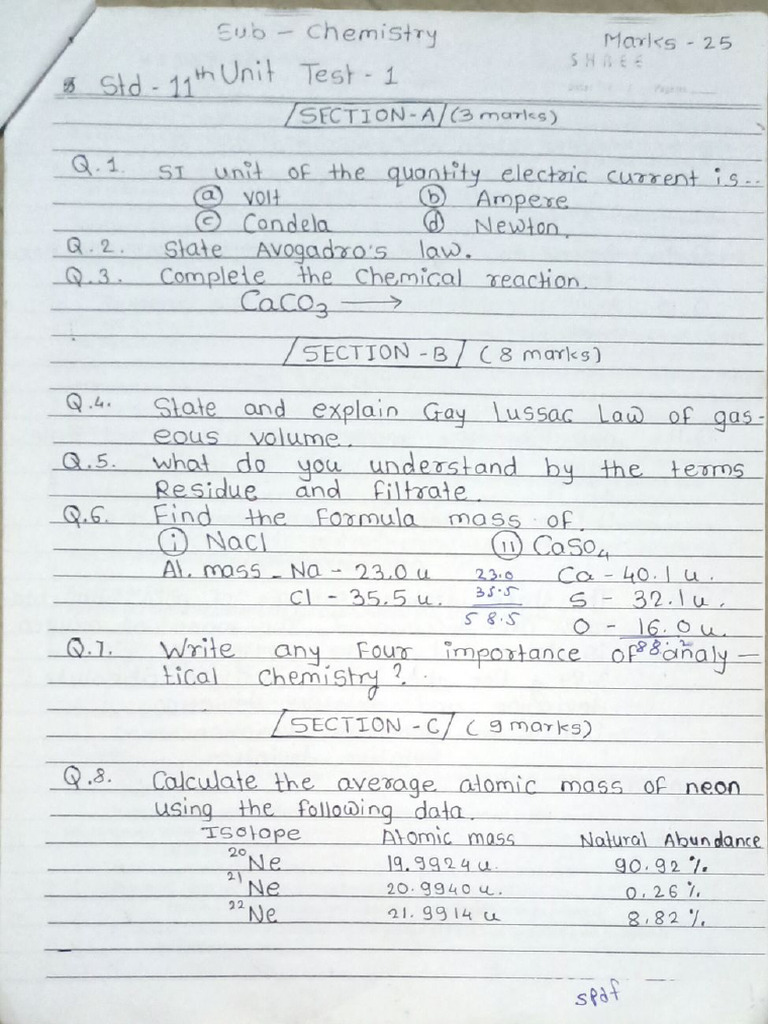 Sub - Chemistry
Marks - 25
SHREE
Std - 11th Unit Test - 1
SECTION-A (3 marks)
Q.1. SI unit of the quantity electric current is..
(a) volt (b) Ampere
(c) Candela (d) Newton.
Q.2. State Avogadro's law.
Q.3. Complete the Chemical reaction.
CaCO3 ⟶
SECTION-B (8 marks)
Q.4. State and explain Gay Lussac Law of gas-
eous volume.
Q.5. what do you understand by the terms
Residue and filtrate.
Q.6. Find the Formula mass of.
(i) NaCl (ii) CaSO4
At. mass - Na - 23.0 u 23.0 Ca - 40.1 u.
Cl - 35.5 u. 35.5 S - 32.1 u.
58.5 O - 16.0 u.
88.2
Q.7. Write any Four importance of analy-
tical chemistry?.
SECTION-C (9 marks)
Q.8. Calculate the average atomic mass of neon
using the following data.
Isotope Atomic mass Natural Abundance
20Ne 19.9924 u. 90.92%
21Ne 20.9940 u. 0.26%
22Ne 21.9914 u 8.82%
spdf